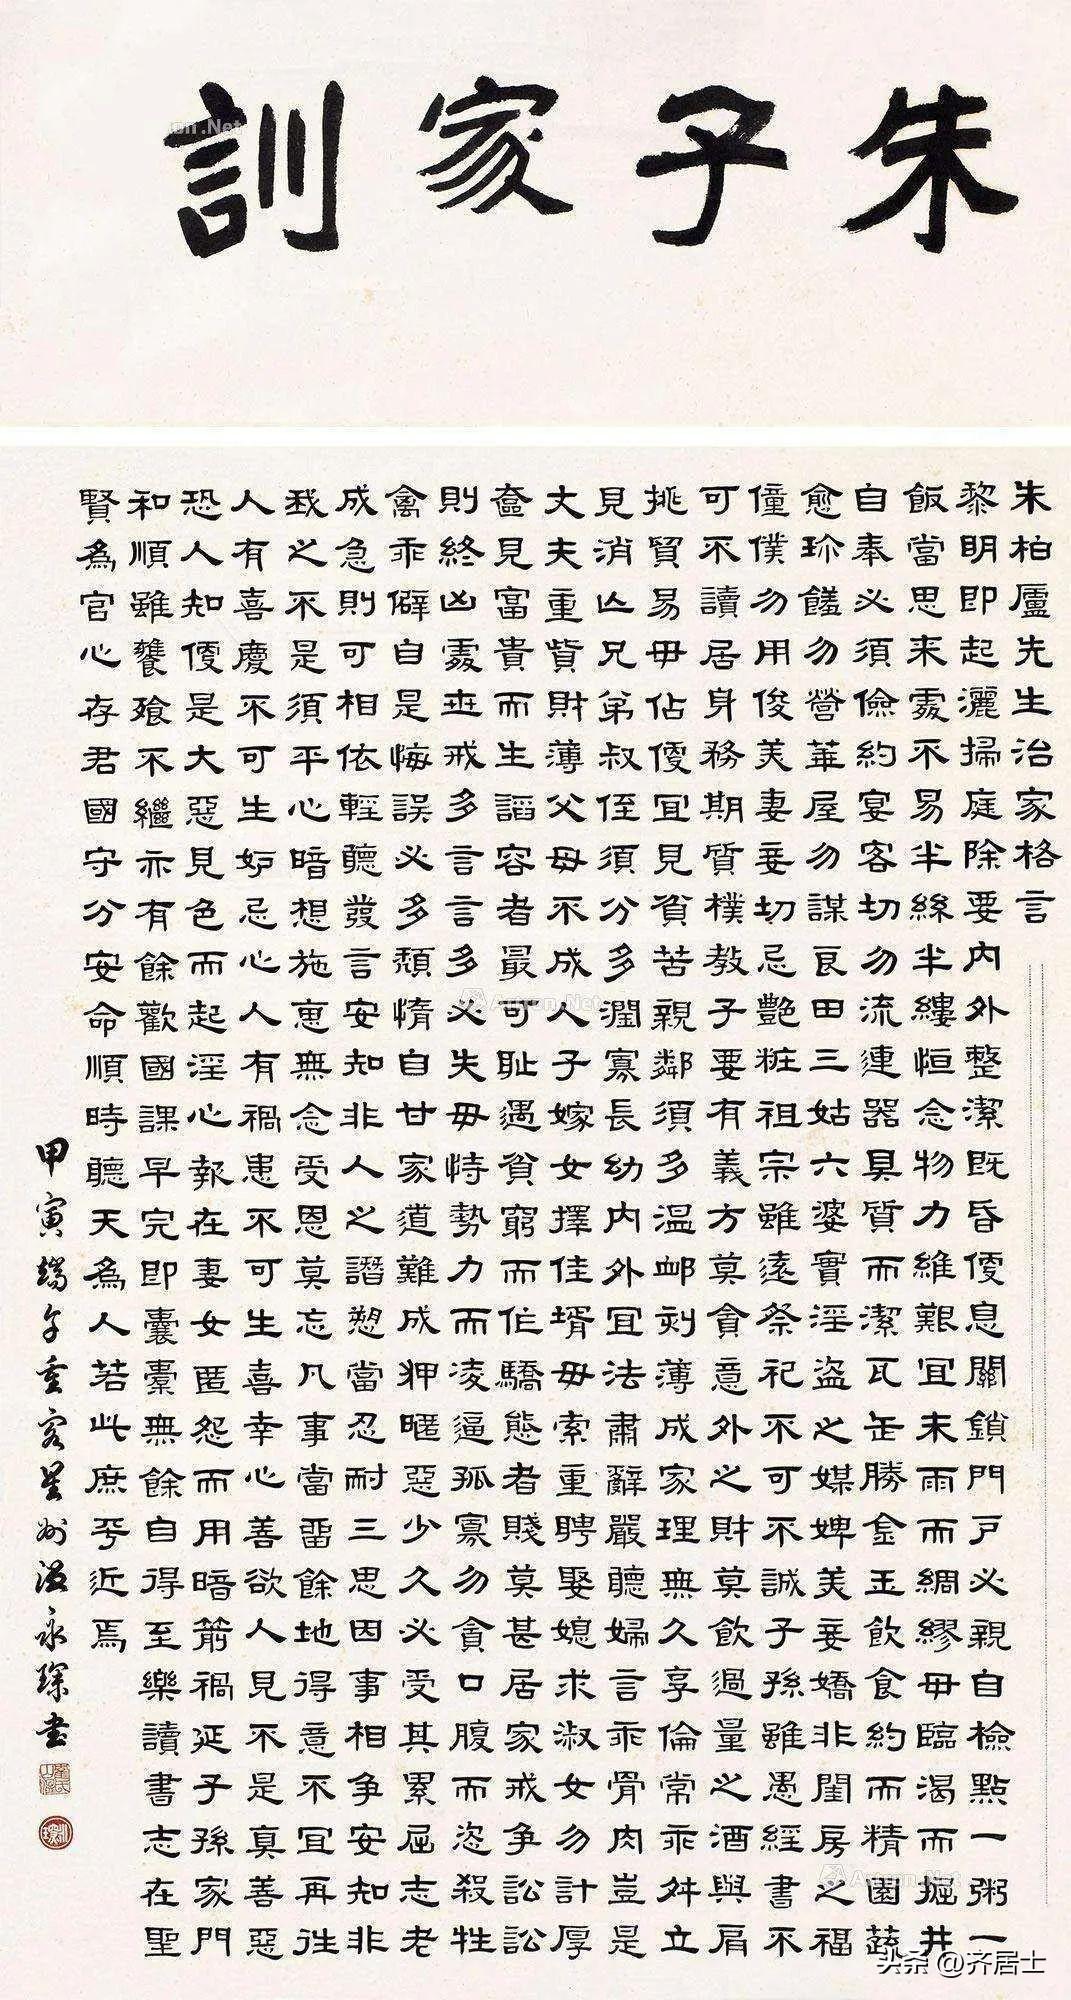 朱子家訓
朱柏廬先生治家格言
黎明即起灑掃庭除要內外整潔既昏便息關鎖門戶必親自檢點一粥一
飯當思來處不易半絲半縷恒念物力維艱宜未雨而綢繆毋臨渴而掘井
自奉必須儉約宴客切勿流連器具質而潔瓦缶勝金玉飲食約而精園蔬
愈珍饈勿營華屋勿謀良田三姑六婆實淫盜之媒婢美妾嬌非閨房之福
僮僕勿用俊美妻妾切忌艷粧祖宗雖遠祭祀不可不誠子孫雖愚經書不
可不讀居身務期質樸教子要有義方莫貪意外之財莫飲過量之酒與肩
挑貿易毋佔便宜見貧苦親鄰須多溫卹刻薄成家理無久享倫常乖舛立
見消亡兄弟叔侄須分多潤寡長幼內外宜法肅辭嚴聽婦言乖骨肉豈是
丈夫重貲財薄父母不成人子嫁女擇佳壻毋索重聘娶媳求淑女勿計厚
奩見富貴而生諂容者最可恥遇貧窮而作驕態者賤莫甚居家戒爭訟訟
則終凶處世戒多言言多必失毋恃勢力而凌逼孤寡勿貪口腹而恣殺牲
禽乖僻自是悔誤必多頹惰自甘家道難成狎暱惡少久必受其累屈志老
成急則可相依輕聽發言安知非人之譖愬當忍耐三思因事相爭安知非
我之不是須平心暗想施惠無念受恩莫忘凡事當留餘地得意不宜再往
人有喜慶不可生妒忌心人有禍患不可生喜幸心善欲人見不是真善惡
恐人知便是大惡見色而起淫心報在妻女匿怨而用暗箭禍延子孫家門
和順雖饔飧不繼亦有餘歡國課早完即囊橐無餘自得至樂讀書志在聖
賢為官心存君國守分安命順時聽天為人若此庶乎近焉
甲寅端午重客星州永琛書
Artron.Net
头条 @齐居士